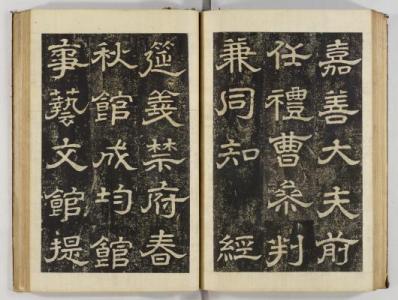 嘉善大夫前
任禮曹叅判
兼同知 經
筵義禁府春
秋館成均館
事藝文館提